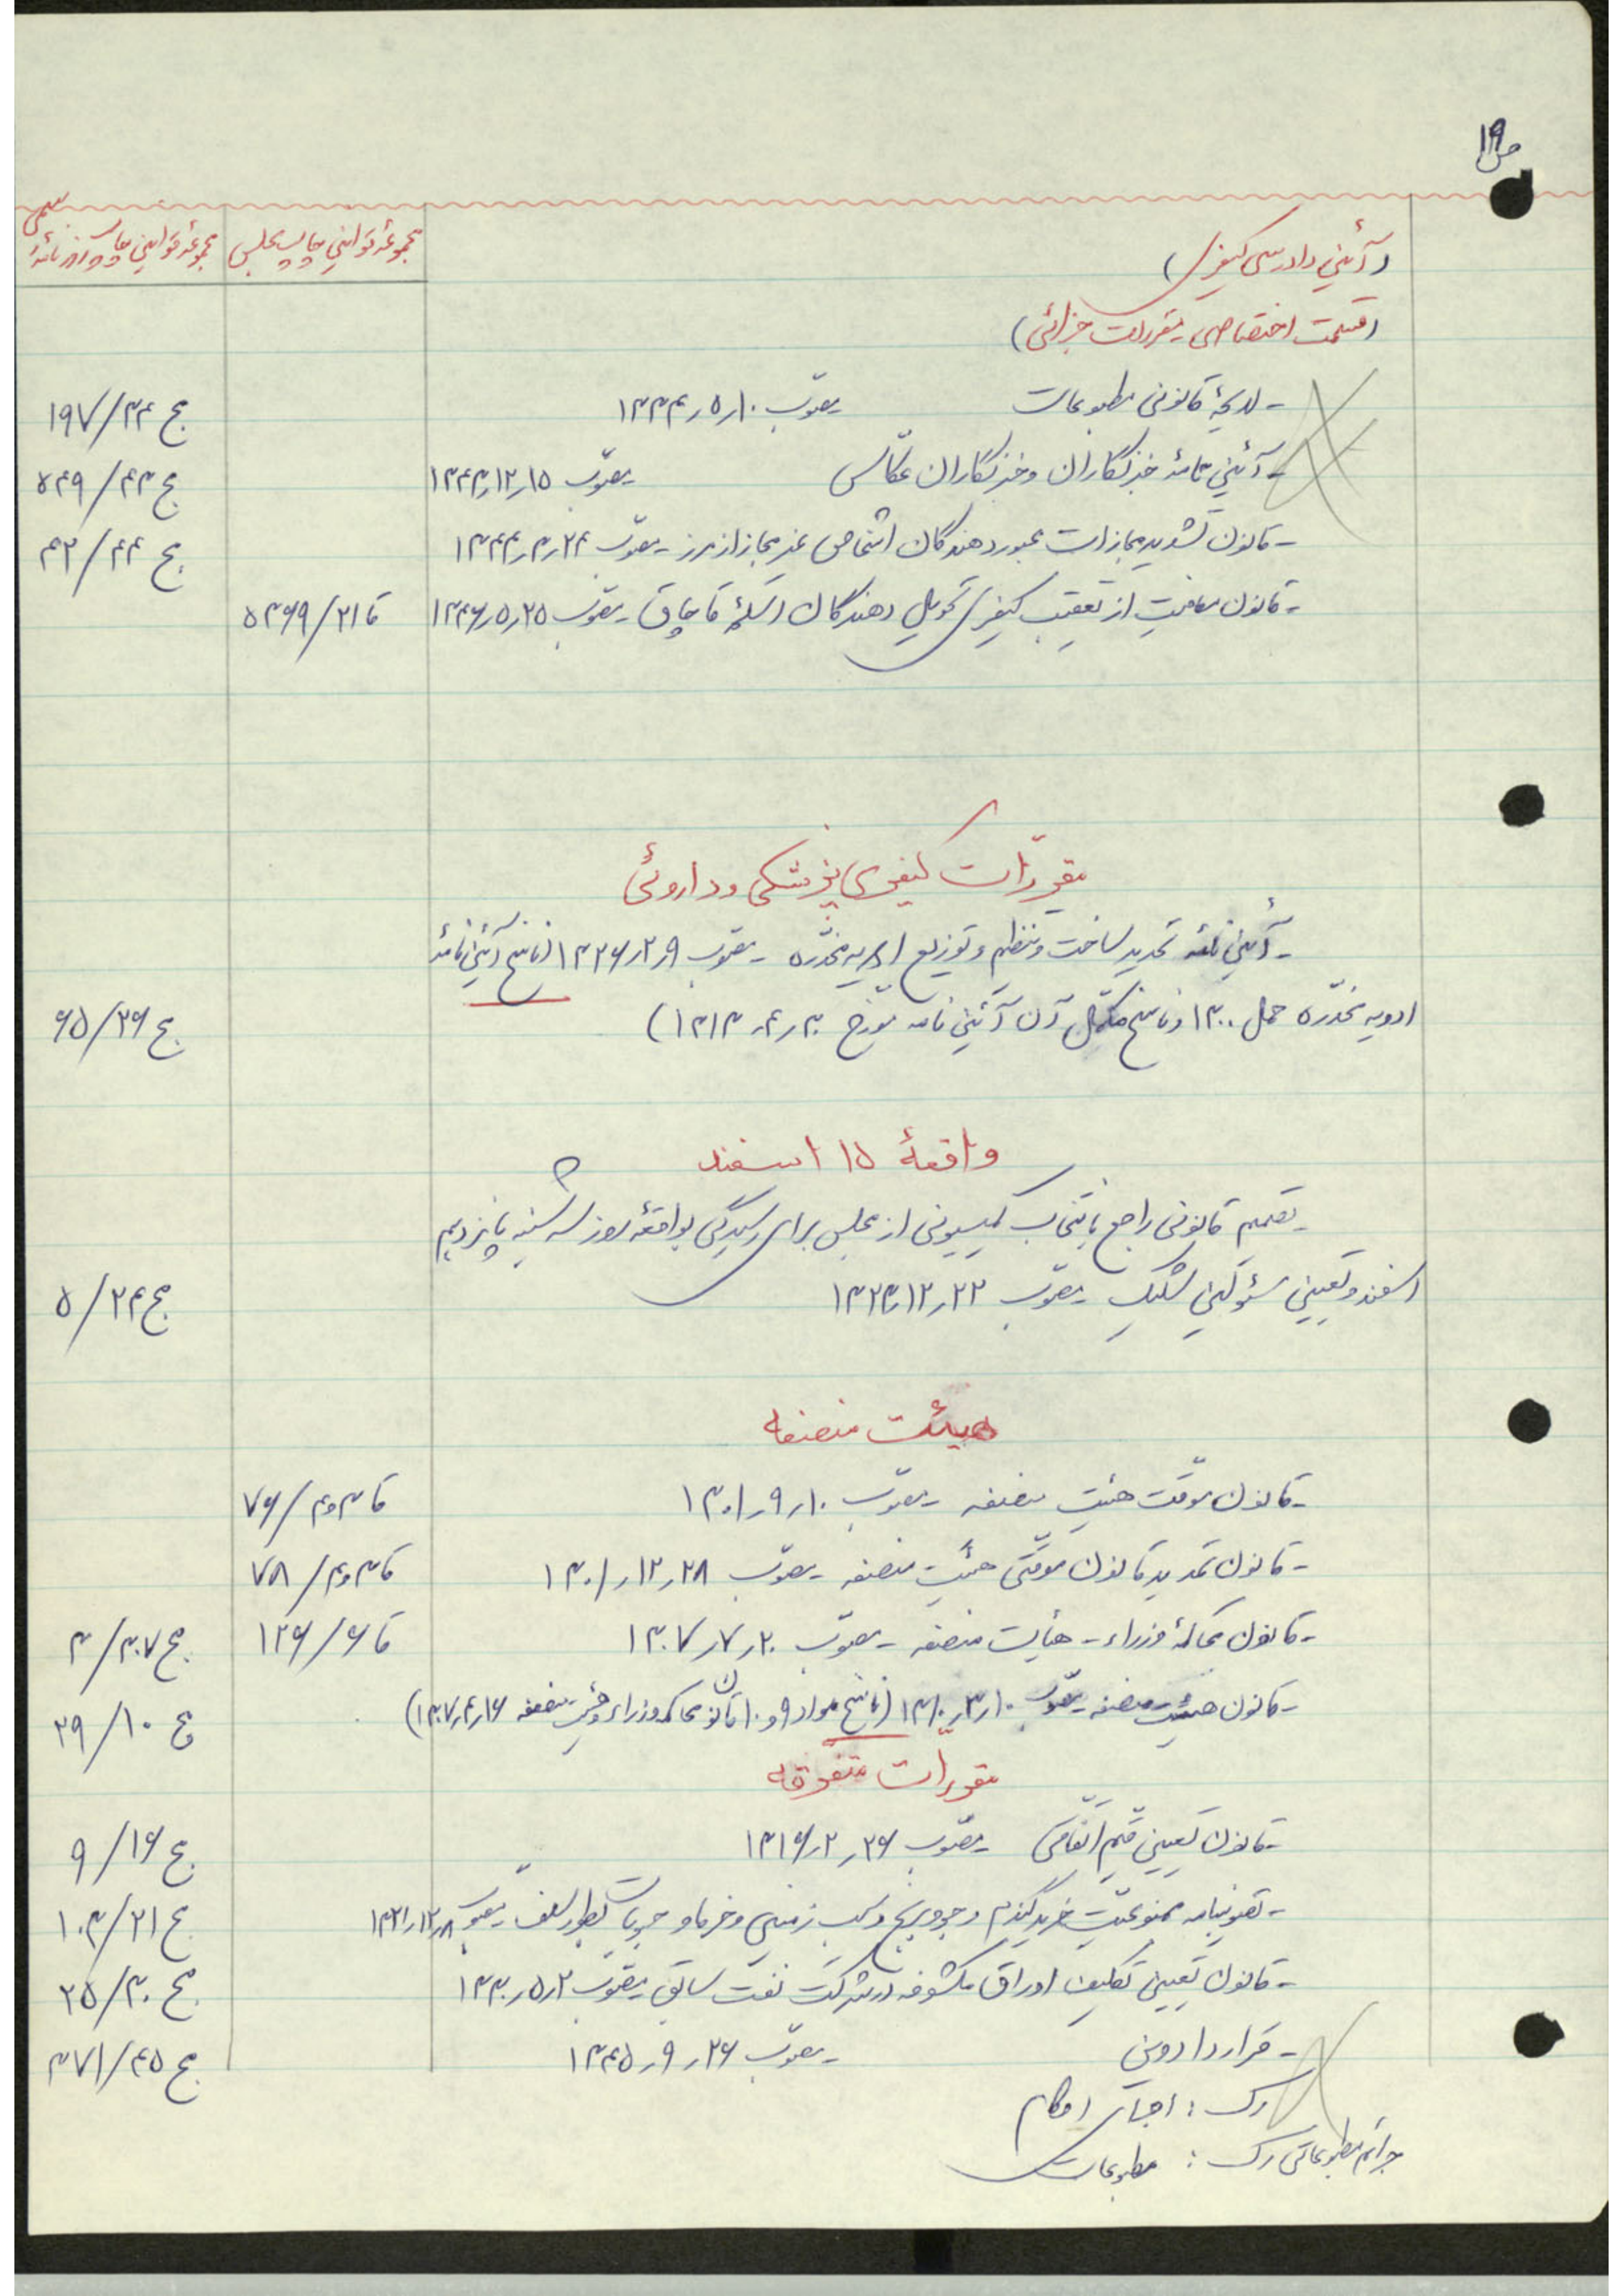 ص ۱۹
(آئین دادرسی کیفری) مجموعهٔ قوانین چاپ مجلس مجموعهٔ قوانین چاپ روزنامهٔ رسمی
(قسمت اختصاصی مقررات جزائی)
- لایحهٔ قانونی مطبوعات مصوّب ۱۰ر۵ر۱۳۳۴ ج ۳۴/۱۹۷
- آئین نامهٔ خبرنگاران و خبرنگاران عکّاس مصوّب ۱۵ر۱۲ر۱۳۴۳ ج ۴۳/۵۴۹
- قانون تشدید مجازات عبور دهندگان اشخاص غیر مجاز از مرز - مصوّب ۲۴ر۳ر۱۳۴۴ ج ۴۴/۴۲
- قانون معافیت از تعقیب کیفری تحویل دهندگان اسلحهٔ قاچاق - مصوب ۲۵ر۵ر۱۳۴۶ قا ۲۱/۵۳۶۹
مقررّات کیفری پزشکی و داروئی
- آئین نامه تحدید ساخت و تنظیم و توزیع ادویه مخدّره - مصوب ۹ر۲ر۱۳۲۶ (ناسخ آئین نامهٔ
ادویه مخدّره حمل ۱۳۰۰ و ناسخ مکمّل آن آئین نامه مورّخ ۳۰ر۴ر۱۳۱۳) ج ۲۶/۶۵
واقعهٔ ۱۵ اسفند
- تصمیم قانونی راجع بانتخاب کمیسیونی از مجلس برای رسیدگی بواقعهٔ روز سه شنبه پانزدهم
اسفند و تعیین مسئولین شلیک - مصوّب ۲۲ر۱۲ر۱۳۲۳ ج ۲۴/۵
هیئت منصفه
- قانون موقّت هیئت منصفه - مصوّب ۱۰ر۹ر۱۳۰۱ قا ۳و۴/۷۶
- قانون تمدید قانون موقّتی هیئت منصفه - مصوّب ۲۸ر۱۲ر۱۳۰۱ قا ۳و۴/۷۸
- قانون محاکمهٔ وزراء - هیأت منصفه - مصوّب ۲۰ر۷ر۱۳۰۷ قا ۶/۱۲۶ ج ۳۰۷/۳
- قانون هیئت منصفه - مصوّب ۱۰ر۳ر۱۳۱۰ (ناسخ مواد ۹ و ۱۰ قانون محاکمه وزراء و هیئت منصفه ۱۶ر۴ر۱۳۰۷) ج ۱۰/۲۹
مقررّات متفرقه
- قانون تعیین قیّم اتّفاقی مصوّب ۲۶ر۲ر۱۳۱۶ ج ۱۶/۹
- تصویبنامه ممنوعیّت خرید گندم و جو و برنج و سیب زمینی و خرما و حبوبات بطور سلف - مصوب ۸ر۱۲ر۱۳۲۱ ج ۲۱/۱۰۳
- قانون تعیین تکلیف اوراق مکشوفه در شرکت نفت سابق مصوّب ۲ر۵ر۱۳۳۰ ج ۳۰/۲۵
- قرارداد وین - مصوّب ۲۶ر۹ر۱۳۴۵ ج ۴۵/۳۷۱
رک : اجرای احکام
جرائم مطبوعاتی رک : مطبوعات